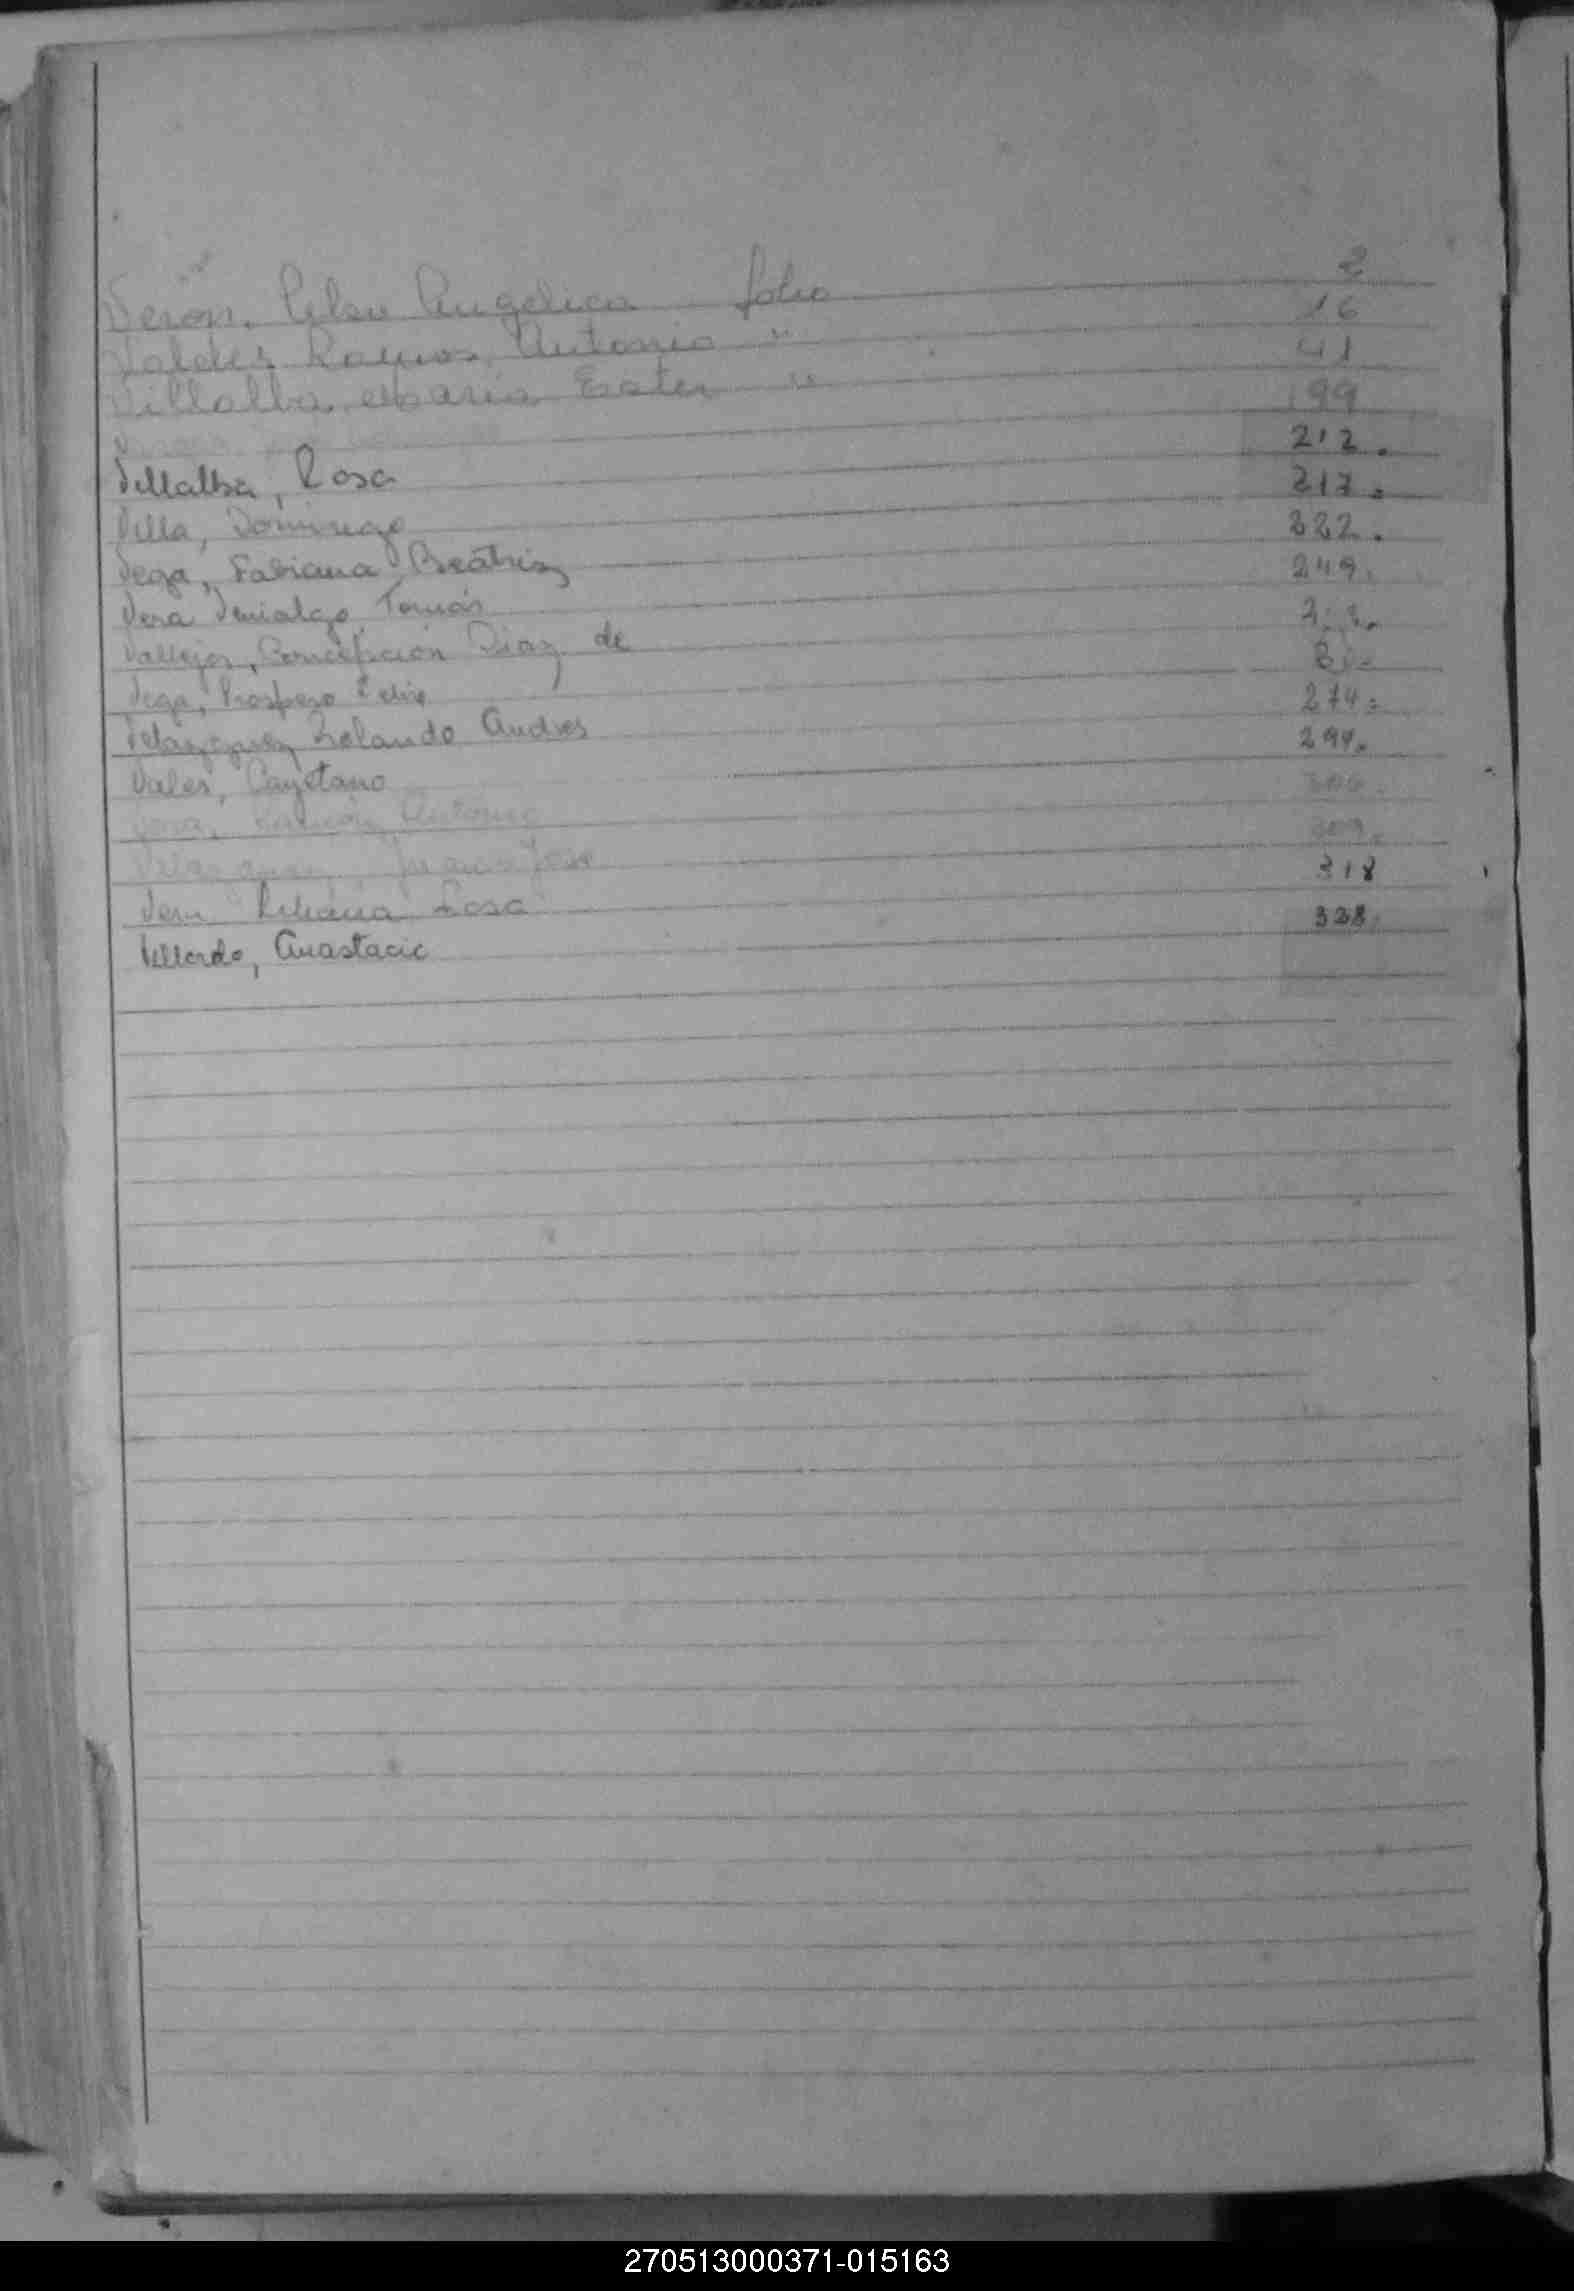 Veron, Angelica folio 2
Valdez Ramos, Antonio " 16
Villalba, Maria Ester " 41
199
Villalba, Rosa 212.
Villa, Domingo 217.
Vega, Fabiana Beatriz 222.
Vera Venialgo Tomás 249.
Vallejos, Concepción Diaz de
Vega, Prospero
Velazquez Rolando Andres 274.
Vales, Cayetano 294.
Vera, Ramón Antonio 306.
Velazquez, Juan José 309.
Vera Liliana Rosa 318
Villordo, Anastacio 328.
270513000371-015163